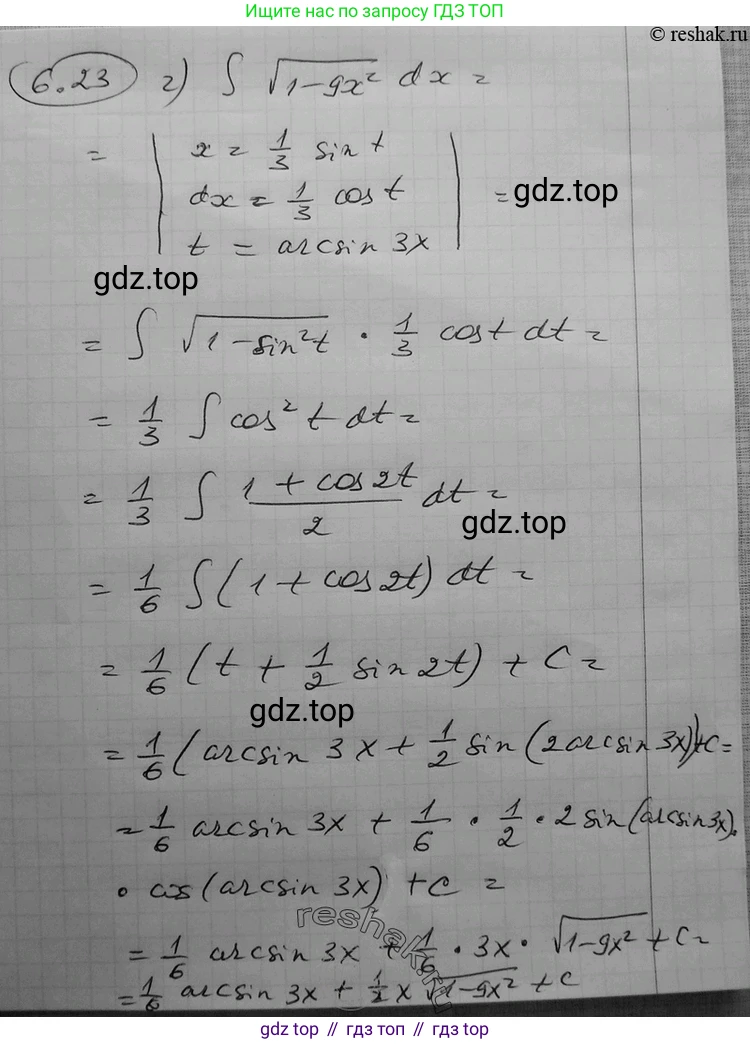 Ищите нас по запросу ГДЗ ТОП
© reshak.ru
6.23 г) ∫ √(1-9x²) dx =
= | x = 1/3 sin t
dx = 1/3 cos t
t = arcsin 3x | =
gdz.top
gdz.top
= ∫ √(1-sin²t) · 1/3 cost dt =
= 1/3 ∫ cos² t dt =
= 1/3 ∫ (1 + cos 2t)/2 dt =
gdz.top
= 1/6 ∫ (1 + cos 2t) dt =
= 1/6 (t + 1/2 sin 2t) + C =
gdz.top
= 1/6 (arcsin 3x + 1/2 sin (2 arcsin 3x)) + C =
= 1/6 arcsin 3x + 1/6 · 1/2 · 2 sin (arcsin 3x) ·
· cos (arcsin 3x) + C =
reshak.ru
= 1/6 arcsin 3x + 1/6 · 3x · √(1-9x²) + C =
= 1/6 arcsin 3x + 1/2 x √(1-9x²) + C
gdz top // гдз топ // gdz top